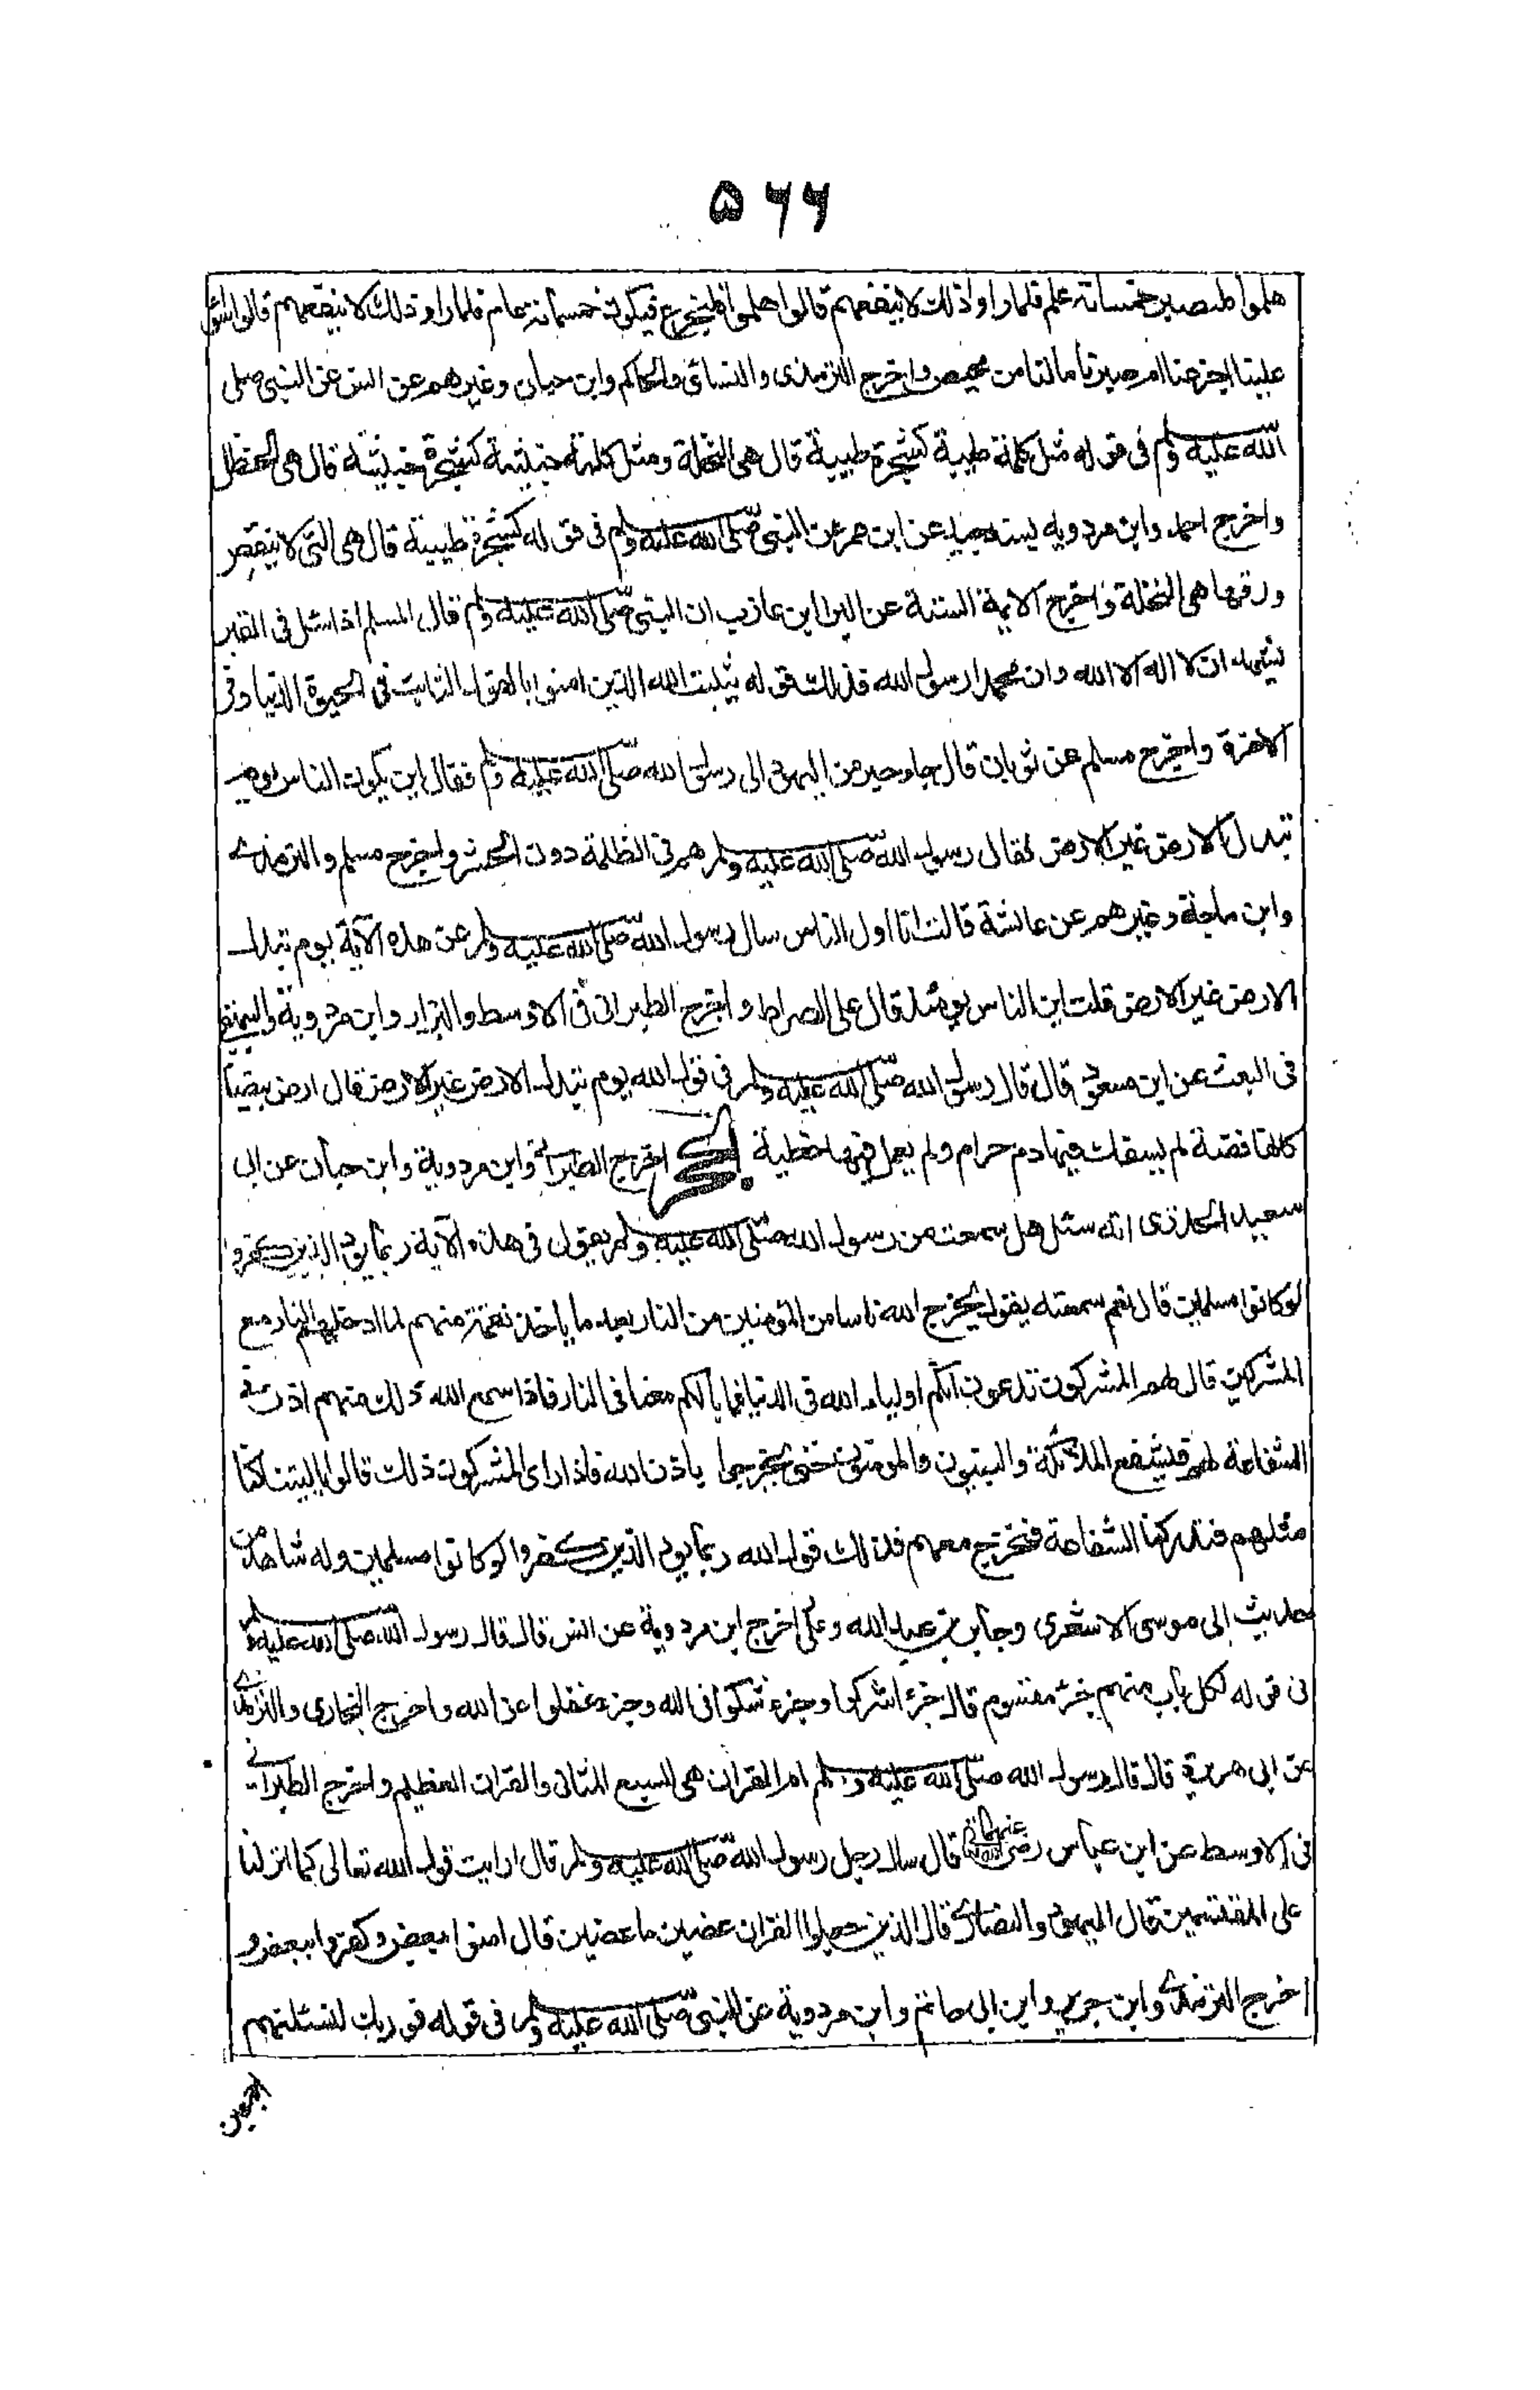 ۵۶۶
هلموا فلنصبر خمسمائة عام فلما راوا ذلك لا ينفعهم قالوا هلموا فلنجزع فيبكون خمسمائة عام فلما راو ذلك لا ينفعهم قالوا سواء
علينا اجزعنا ام صبرنا ما لنا من محيص واخرج الترمذى والنسائى والحاكم وابن حبان وغيرهم عن انس عن النبى صلى
الله عليه وسلم فى قوله مثل كلمة طيبة كشجرة طيبة قال هى النخلة ومثل كلمة خبيثة كشجرة خبيثة قال هى الحنظل
واخرج احمد وابن مردويه بسند جيد عن ابن عمر عن النبى صلى الله عليه وسلم فى قوله كشجرة طيبة قال هى التى لا ينقص
ورقها هى النخلة واخرج الايمة الستة عن البرا ابن عازب ان النبى صلى الله عليه وسلم قال المسلم اذا سئل فى القبر
يشهد ان لا اله الا الله وان محمدا رسول الله فذلك قوله يثبت الله الذين امنوا بالقول الثابت فى الحيوة الدنيا وفى
الاخرة واخرج مسلم عن ثوبان قال جاء حبر من اليهود الى رسول الله صلى الله عليه وسلم فقال اين يكون الناس يوم
تبدل الارض غير الارض فقال رسول الله صلى الله عليه وسلم هم فى الظلمة دون الجسر واخرج مسلم والترمذى
وابن ماجة وغيرهم عن عائشة قالت انا اول الناس سال رسول الله صلى الله عليه وسلم عن هذه الآية يوم تبدل
الارض غير الارض قلت اين الناس يومئذ قال على الصراط واخرج الطبرانى فى الاوسط والبزار وابن مردوية والبيهقى
فى البعث عن ابن مسعود قال قال رسول الله صلى الله عليه وسلم فى قول الله يوم تبدل الارض غير الارض قال ارض بيضا
كانها فضة لم يسفك فيها دم حرام ولم يعمل فيها خطية الحجر اخرج الطبرانى وابن مردوية وابن حبان عن ابى
سعيد الخدرى انه سئل هل سمعت من رسول الله صلى الله عليه وسلم يقول فى هذه الآية ربما يود الذين كفروا
لو كانوا مسلمين قال نعم سمعته يقول يخرج الله ناسا من المؤمنين من النار بعد ما ياخذ نقمته منهم لما ادخلهم النار مع
المشركين قال لهم المشركون تدعون انكم اولياء الله فى الدنيا فما بالكم معنا فى النار فاذا سمع الله ذلك منهم اذن فى
الشفاعة لهم فيشفع الملائكة والنبيون والمومنون حتى يخرجوا باذن الله فاذا راى المشركون ذلك قالوا ياليتنا كنا
مثلهم فتدركنا الشفاعة فنخرج معهم فذلك قول الله ربما يود الذين كفروا لو كانوا مسلمين وله شاهد من
حديث ابى موسى الاشعرى وجابر بن عبد الله وعلى اخرج ابن مردوية عن انس قال قال رسول الله صلى الله عليه وسلم
فى قوله لكل باب منهم جزء مقسوم قال جزء اشركوا وجزء شكوا فى الله وجزء غفلوا عن الله واخرج البخارى والترمذى
عن ابى هريرة قال قال رسول الله صلى الله عليه وسلم ام القران هى السبع المثانى والقران العظيم واخرج الطبرانى
فى الاوسط عن ابن عباس رضى الله عنهما قال سال رجل رسول الله صلى الله عليه وسلم قال ارايت قول الله تعالى كما انزلنا
على المقتسمين قال اليهود والنصارى قال الذين جعلوا القران عضين ما عضين قال امنوا ببعض وكفروا ببعض و
اخرج الترمذى وابن جرير وابن ابى حاتم وابن مردوية عن النبى صلى الله عليه وسلم فى قوله فوربك لنسئلنهم
اجمعين